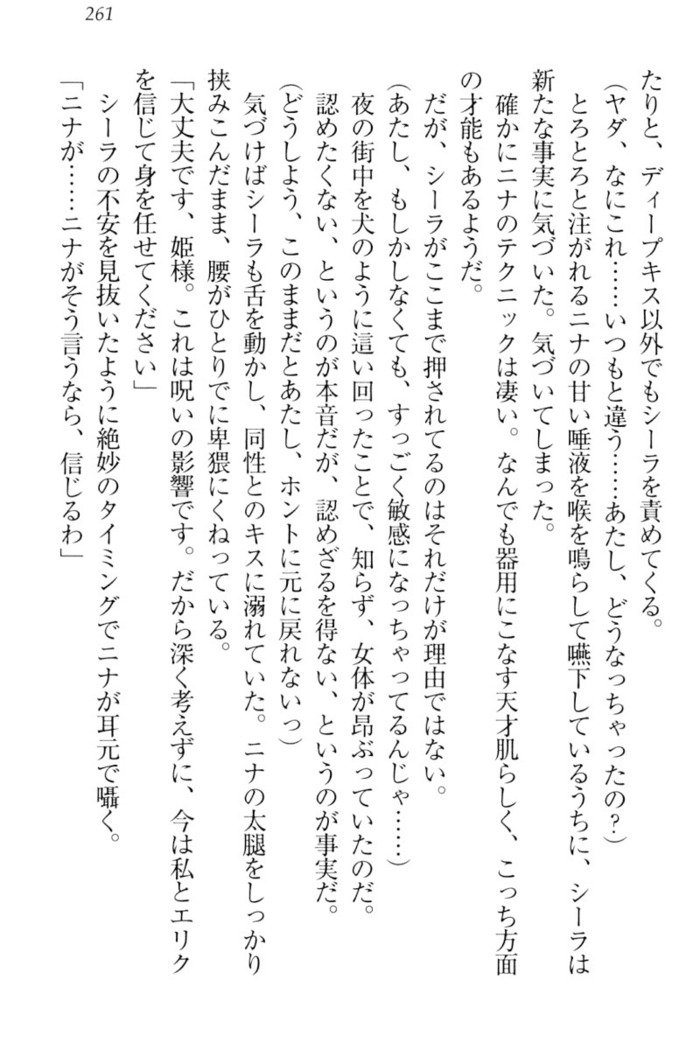 261
たりと、ディープキス以外でもシーラを責めてくる。
(ヤダ、なにこれ……いつもと違う……あたし、どうなっちゃったの?)
とろとろと注がれるニナの甘い唾液を喉を鳴らして嚥下しているうちに、シーラは
新たな事実に気づいた。気づいてしまった。
確かにニナのテクニックは凄い。なんでも器用にこなす天才肌らしく、こっち方面
の才能もあるようだ。
だが、シーラがここまで押されてるのはそれだけが理由ではない。
(あたし、もしかしなくても、すっごく敏感になっちゃってるんじゃ……)
夜の街中を犬のように這い回ったことで、知らず、女体が昂ぶっていたのだ。
認めたくない、というのが本音だが、認めざるを得ない、というのが事実だ。
(どうしよう、このままだとあたし、ホントに元に戻れないっ)
気づけばシーラも舌を動かし、同性とのキスに溺れていた。ニナの太腿をしっかり
挟みこんだまま、腰がひとりでに卑猥にくねっている。
「大丈夫です、姫様。これは呪いの影響です。だから深く考えずに、今は私とエリク
を信じて身を任せてください」
シーラの不安を見抜いたように絶妙のタイミングでニナが耳元で囁く。
「ニナが……ニナがそう言うなら、信じるわ」